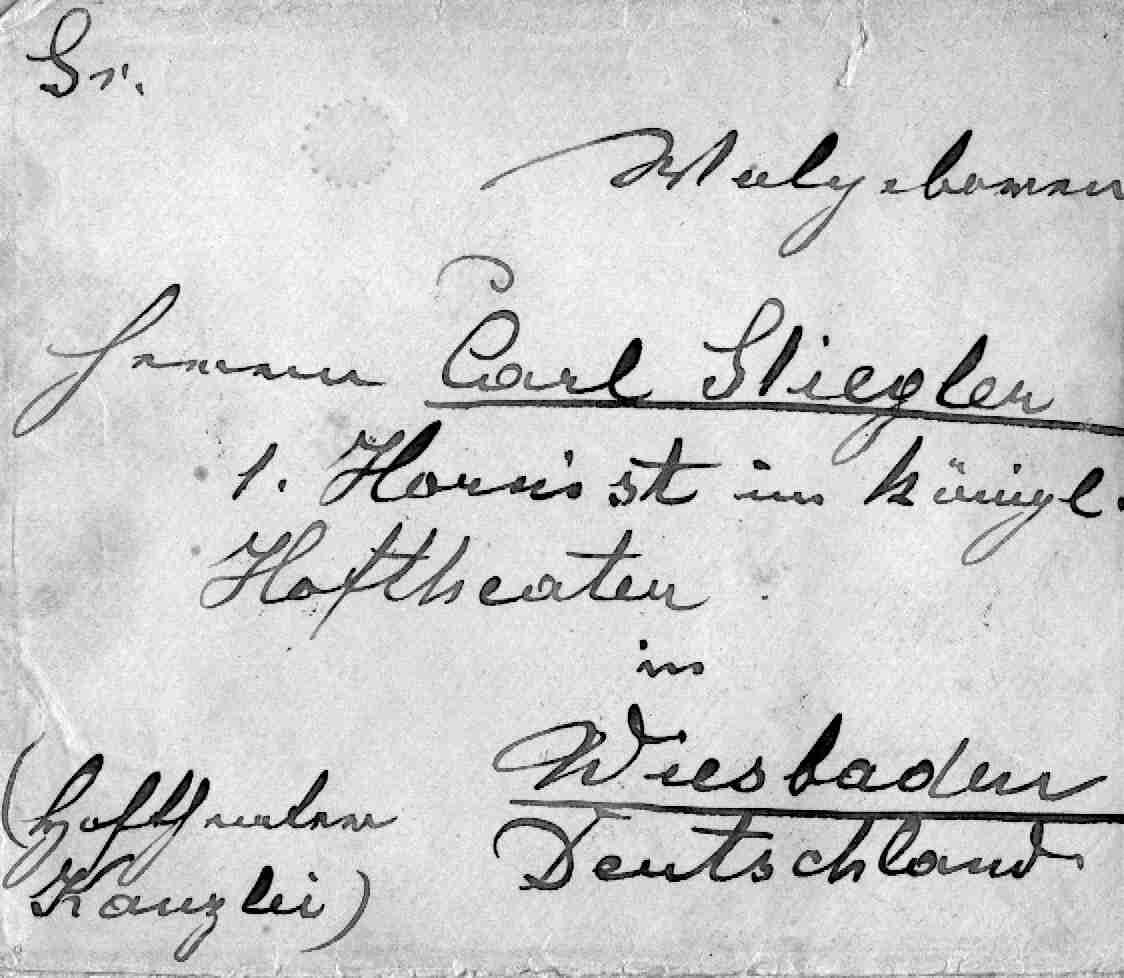 Sr.
Wolgeboren
Herrn Carl Stiegler
1. Hornist im königl.
Hoftheater
in
Wiesbaden
Deutschland
(Hoftheater
Kanzlei)